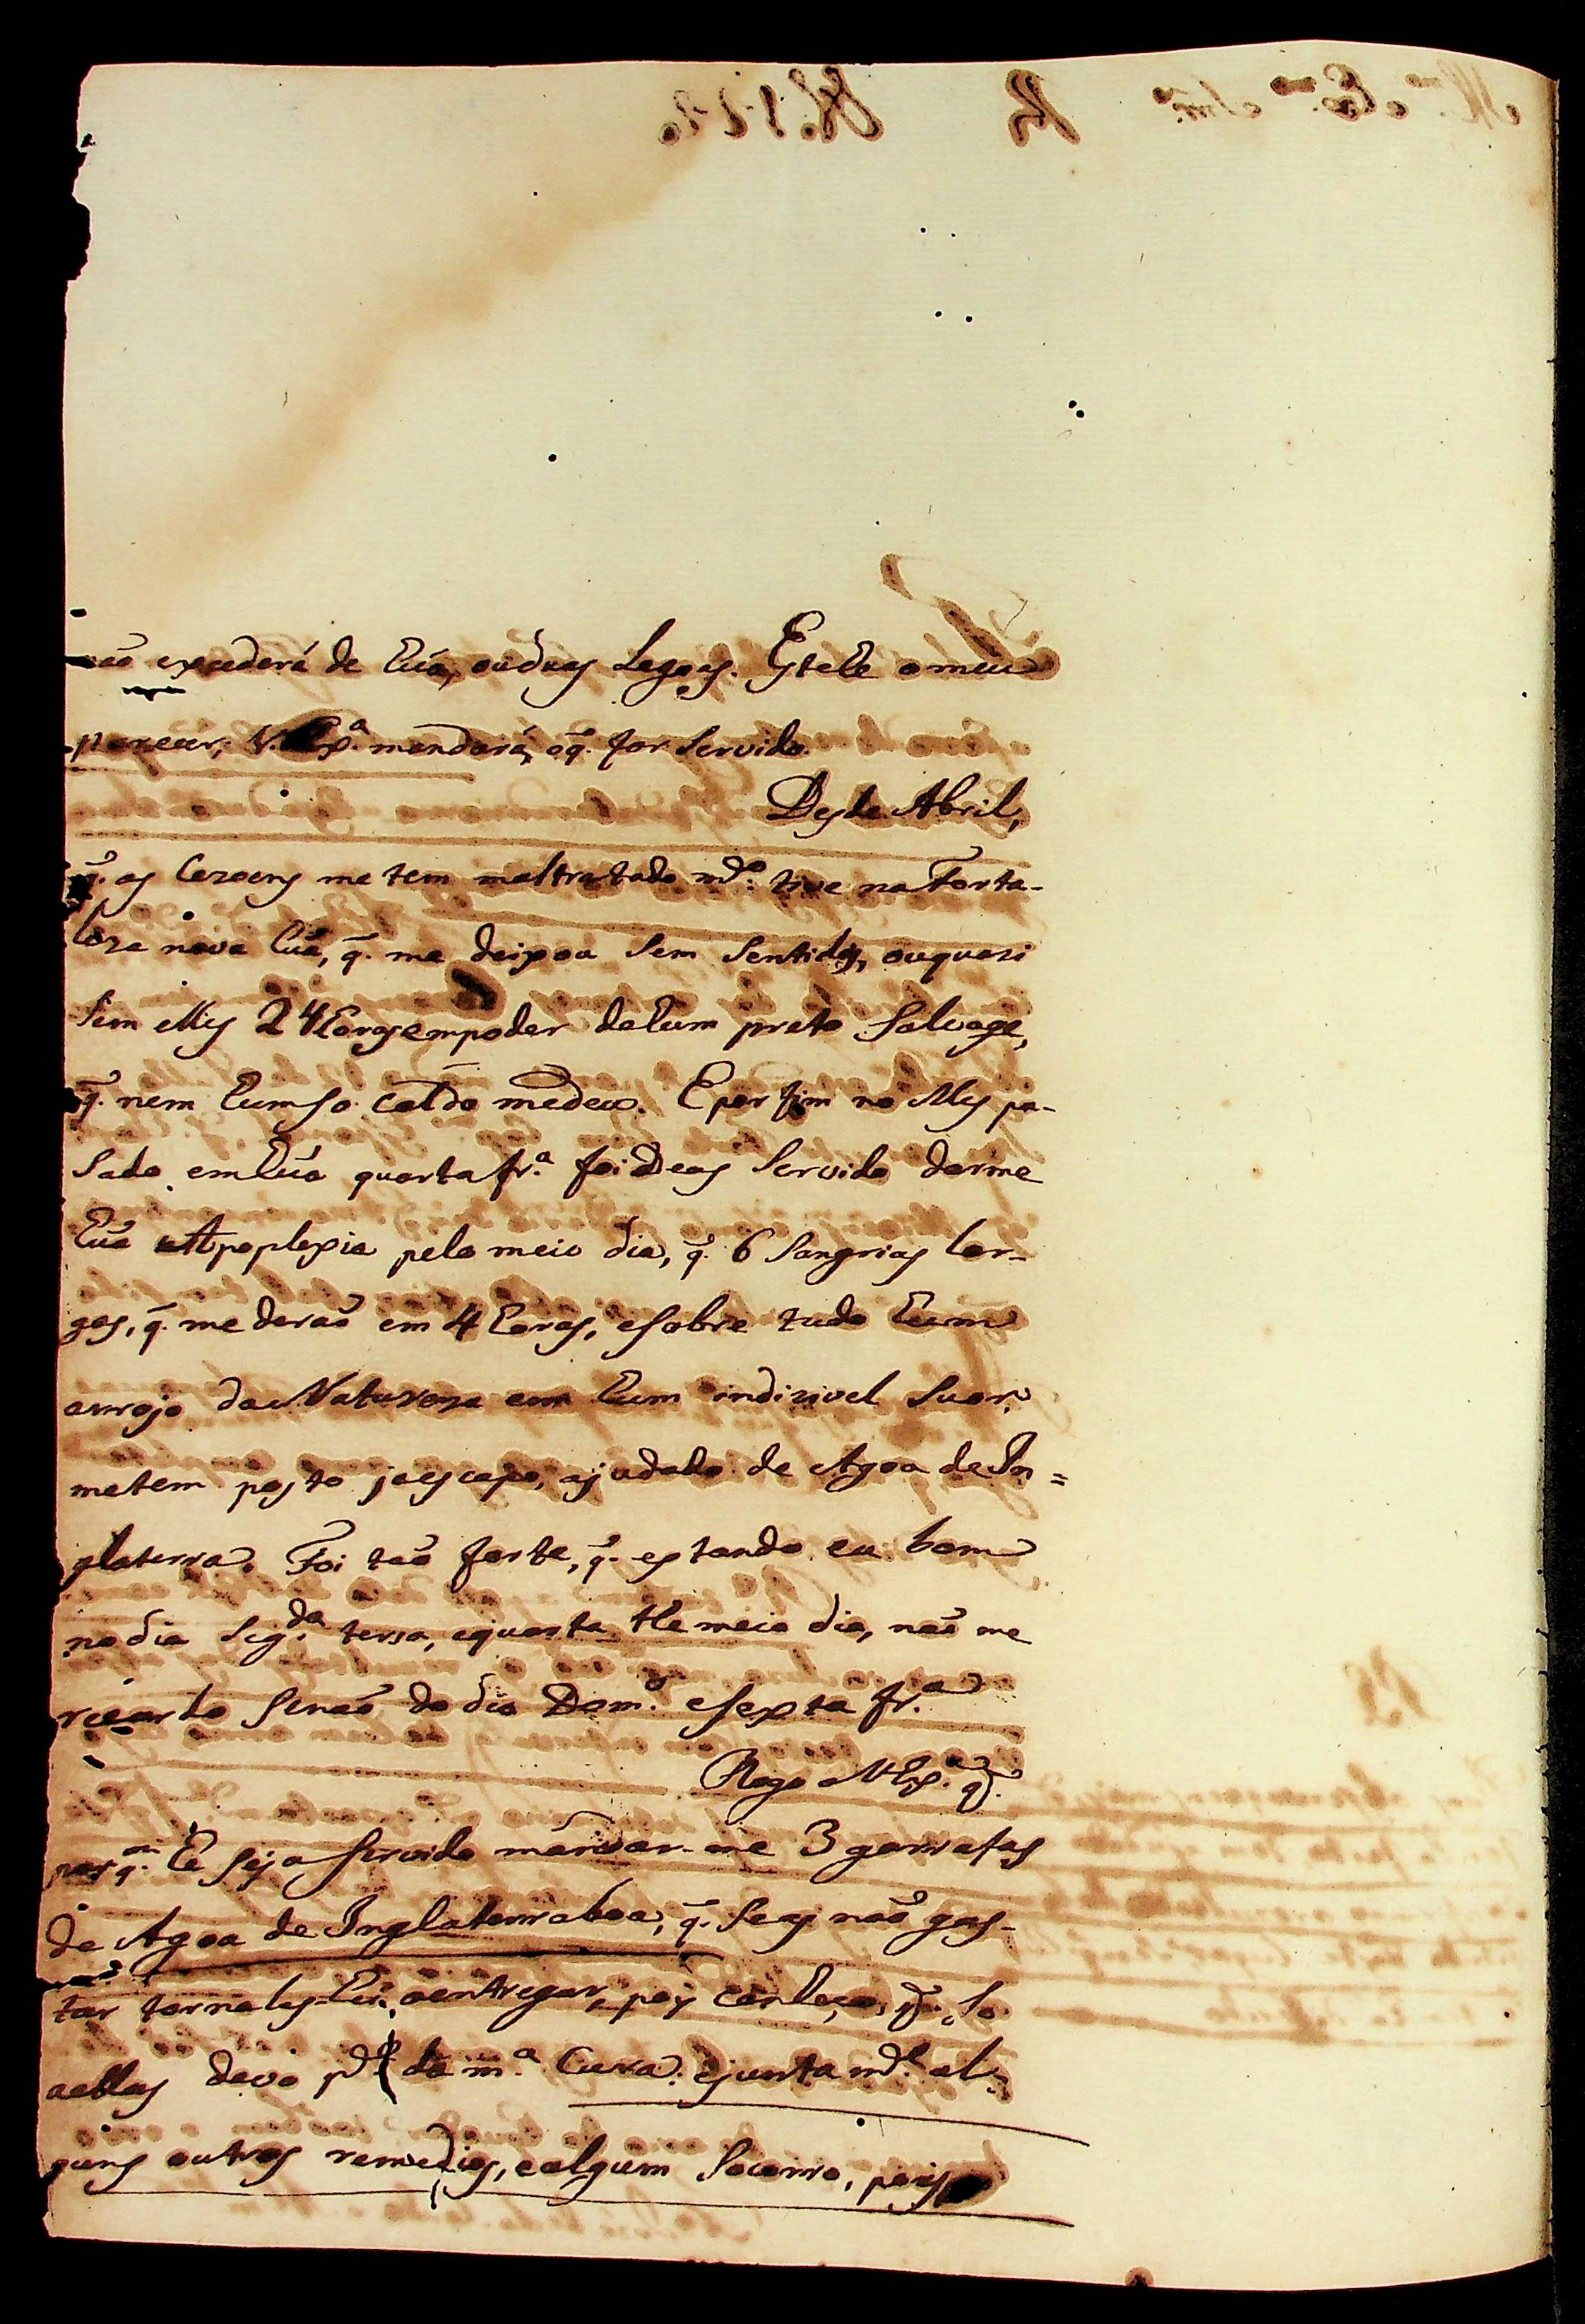 não excederá de hũa, ou duas Legoas. Este he o meu
parecer; V. Exª. mandará, o q̃. for servido.
Desde Abril,
q̃. as Cezoens me tem maltratado m.do tive na Forta-
leza nova hũa, q̃. me deixou sem sentidos, ou quazi
sem elles 24 horas em poder de hum preto salvage,
q̃. nem hum so caldo me deu. E por fim no Mes pa-
sado em hũa quarta fr.ª foi Deos servido dar me
hũa Apoplexia pelo meio dia, q̃. 6 sangrias lar-
gas, q̃. me derão em 4 horas, e sobre tudo hum
arrojo da Natureza em hum indizivel suor,
me tem posto ja escapo, ajudado de Agoa de In=
glaterra. Foi tão forte, q̃. estando eu bom
no dia seg.da tersa, e quarta the meio dia, não me
ricordo senão do dia Dom.º e sexta fr.ª
Rogo a V. Exª. q̃.
por q.m he seja servido mandar-me 3 garrafas
de Agoa de Inglaterra boa, q̃. se as não gas-
tar tornales-hei a entregar, pois conheço, q̃. so
a ellas devo p.te da m.ª Cura: e junta m.te al-
guns outros remedios, e algum socorro, pois